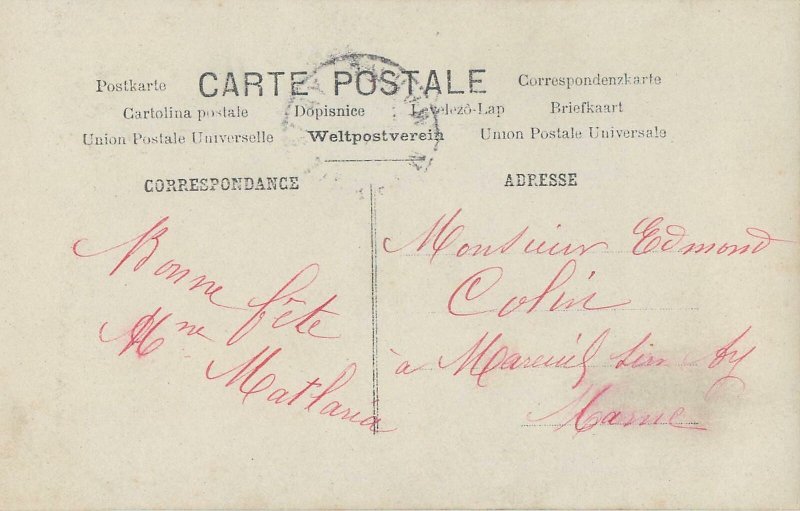 CARTE POSTALE
Postkarte Correspondenzkarte
Cartolina postale Dopisnice Levelezô-Lap Briefkaart
Union Postale Universelle Weltpostverein Union Postale Universale
CORRESPONDANCE
Bonne fête
Mme
ADRESSE
Monsieur Edmond
Colin
à Mareuil sur Ay
Marne